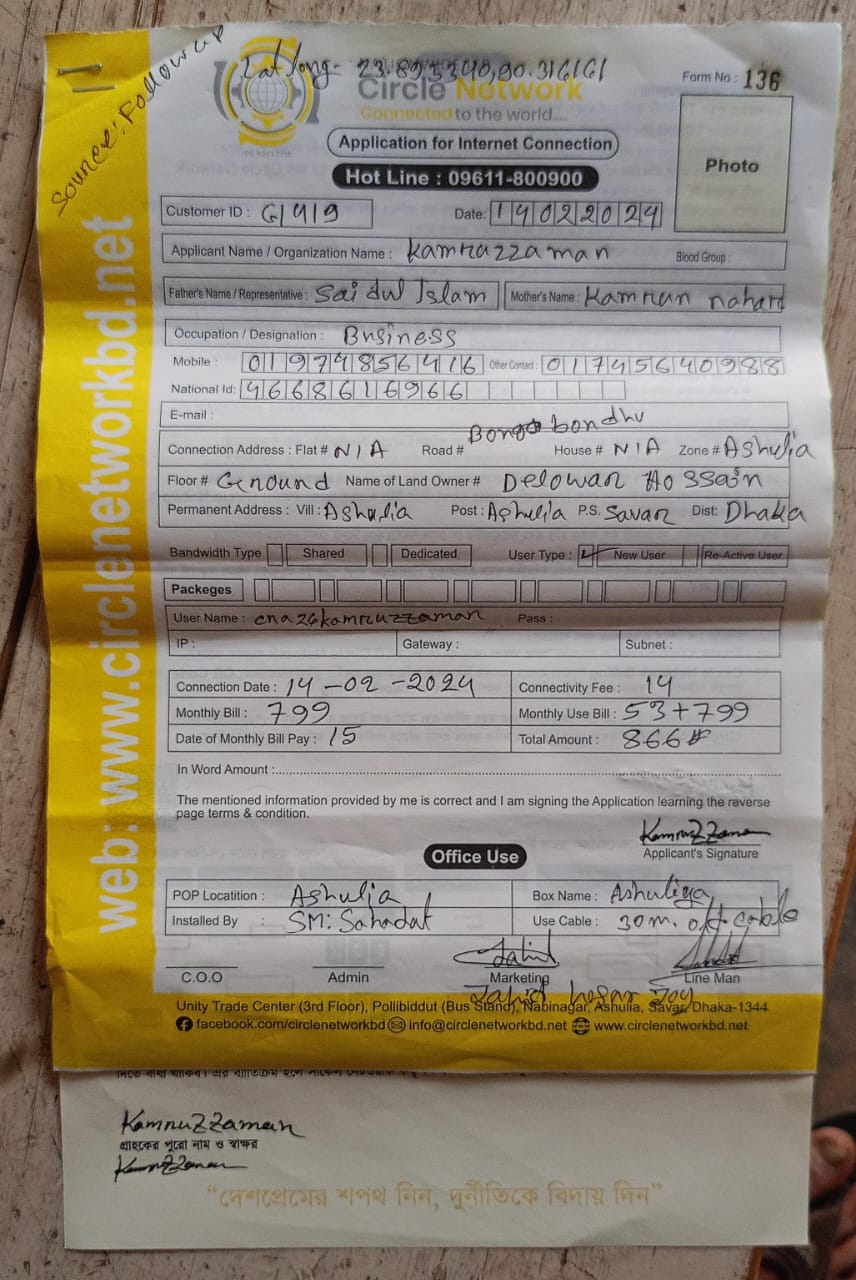 Source: Followup
Lat long- 23.895340,90.316161
Circle Network
Connected to the world.....
Form No : 136
Application for Internet Connection
Photo
Hot Line : 09611-800900
Customer ID : G1419 Date: 14022024
Applicant Name / Organization Name : Kamruzzaman Blood Group :
Father's Name / Representative : Saidul Islam Mother's Name : Kamrun nahar
Occupation / Designation : Business
Mobile : 01974856416 Other Contact : 01745640988
National Id: 4668616966
E-mail :
Connection Address : Flat # N/A Road # Bongobondhu House # N/A Zone # Ashulia
Floor # Ground Name of Land Owner # Delowar Hossain
Permanent Address : Vill : Ashulia Post : Ashulia P.S. Savar Dist: Dhaka
Bandwidth Type Shared Dedicated User Type : New User Re-Active User
Packeges
User Name : cna26kamruzzaman Pass :
IP : Gateway : Subnet :
Connection Date : 14-02-2024 Connectivity Fee : 14
Monthly Bill : 799 Monthly Use Bill : 53+799
Date of Monthly Bill Pay : 15 Total Amount : 866#
In Word Amount :
The mentioned information provided by me is correct and I am signing the Application learning the reverse
page terms & condition.
Kamruzzaman
Applicant's Signature
Office Use
POP Locatition : Ashulia Box Name : Ashuliya
Installed By : SM: Sahadat Use Cable : 30m. cable
C.O.O Admin Marketing Line Man
Unity Trade Center (3rd Floor), Pollibiddut (Bus Stand), Nabinagar, Ashulia, Savar, Dhaka-1344
facebook.com/circlenetworkbd info@circlenetworkbd.net www.circlenetworkbd.net
web: www.circlenetworkbd.net
KamruZZaman
গ্রাহকের পুরো নাম ও স্বাক্ষর
Kamruzzaman
“দেশপ্রেমের শপথ নিন, দুর্নীতিকে বিদায় দিন”